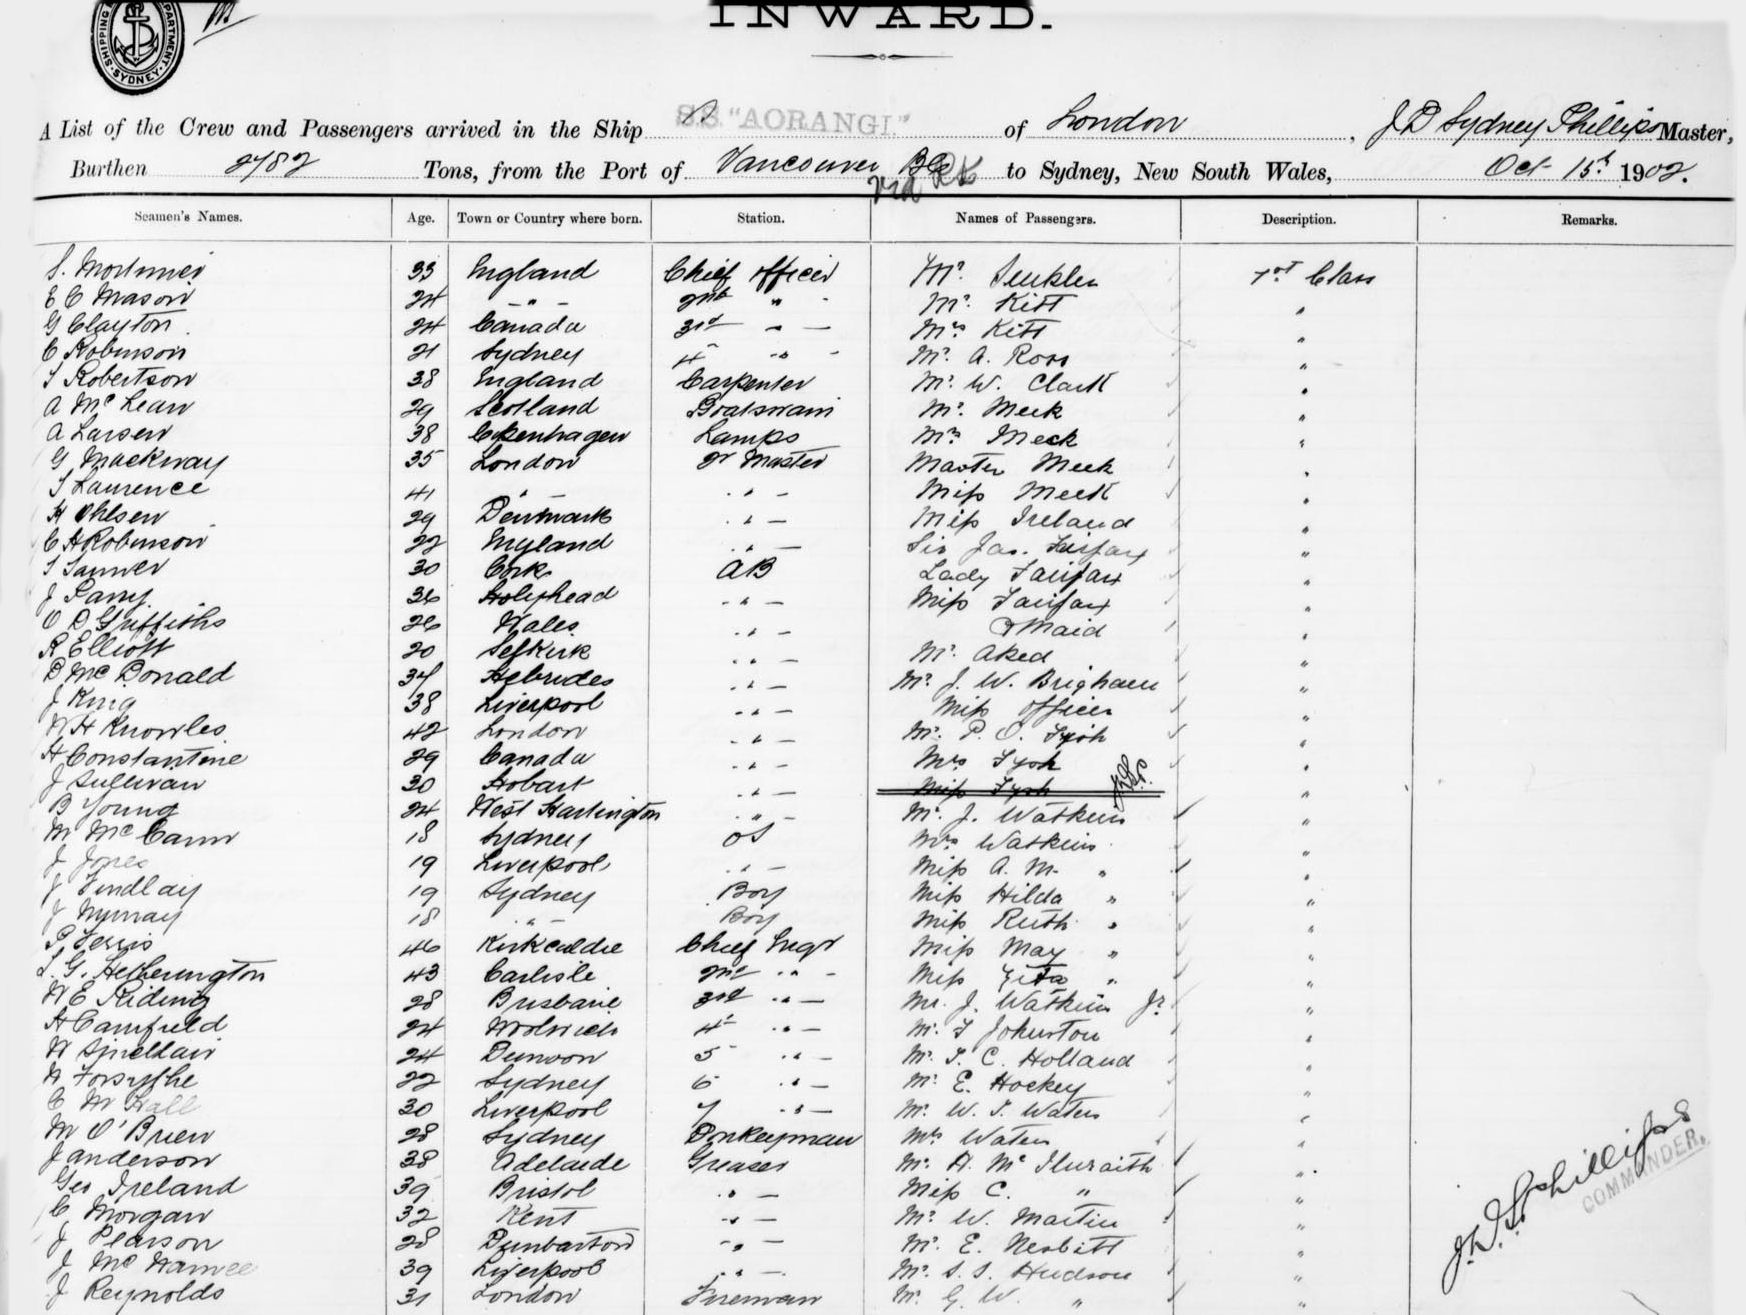 SHIPPING DEPARTMENT SYDNEY
INWARD.
A List of the Crew and Passengers arrived in the Ship S.S. "AORANGI" of London, J D Sydney Phillips Master,
Burthen 2782 Tons, from the Port of Vancouver BC via to Sydney, New South Wales, Oct 15th 1902.
Seamen's Names. Age. Town or Country where born. Station. Names of Passengers. Description. Remarks.
S. Mortimer 33 England Chief Officer Mr. 1st Class
E C Mason 24 -"- 2nd " Mr. Kitt "
G Clayton 24 Canada 3rd " Mrs Kitt "
C Robinson 21 Sydney 4th " Mr. A. Ross "
Robertson 38 England Carpenter Mr. W. Clark "
A McLean 29 Scotland Boatswain Mr. Meek "
A Larsen 38 Copenhagen Lamps Mrs Meek "
G Mackway 35 London Qr Master Master Meek "
Laurence 41 " " Miss Meek "
H Ohlsen 29 Denmark " Miss Ireland "
C H Robinson 22 England " Sir Jas. Fairfax "
30 Cork AB Lady Fairfax "
J Parry 36 Holyhead " Miss Fairfax "
O D Griffiths 26 Wales " & Maid "
R Elliott 20 Selkirk " Mr. Aked "
D McDonald 34 Hebrides " Mr. J. W. Brigham "
J King 38 Liverpool " Miss Officer "
W H Knowles 42 London " Mr. P. O. Fysh "
H Constantine 29 Canada " Mrs Fysh "
J Sullivan 30 Hobart " Miss Fysh
B Young 24 West Hartington " Mr. J. Watkins "
M McCann 18 Sydney OS Mrs Watkins "
J Jones 19 Liverpool " Miss A. M. " "
J Findlay 19 Sydney Boy Miss Hilda " "
J 18 " Boy Miss Ruth " "
P Ferris 46 Kirkcaldie Chief Engr Miss May " "
L. G. Hetherington 43 Carlisle 2nd " Miss " "
W E Riding 28 Brisbane 3rd " Mr. J. Watkins Jr "
H Camfield 24 Woolwich 4th " Mr. F Johnston "
W Sinclair 24 Dunoon 5 " Mr. T. C. Holland "
W Forsythe 22 Sydney 6 " Mr. E. Hockey "
C W Hall 30 Liverpool 7 " Mr. W. T. Waters "
M O'Brien 28 Sydney Donkeyman Mrs Waters "
J Anderson 38 Adelaide Greaser Mr. H. McIlwraith "
Geo Ireland 39 Bristol " Miss C. " "
C Morgan 32 Kent " Mr. W. Martin "
J Pearson 28 Dunbarton " Mr. E. Nesbitt "
J McNamee 39 Liverpool " Mr. S. S. Hudson "
J Reynolds 31 London Fireman Mr. G. W. " "
J. D. S. Phillips
COMMANDER.